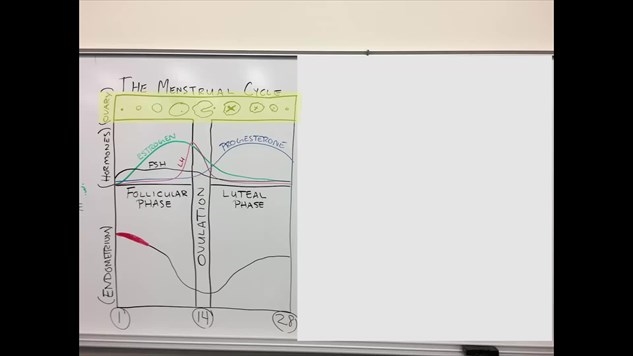 THE MENSTRUAL CYCLE
(OVARY)
(HORMONES)
ESTROGEN
LH
FSH
PROGESTERONE
FOLLICULAR
PHASE
OVULATION
LUTEAL
PHASE
(ENDOMETRIUM)
1
14
28